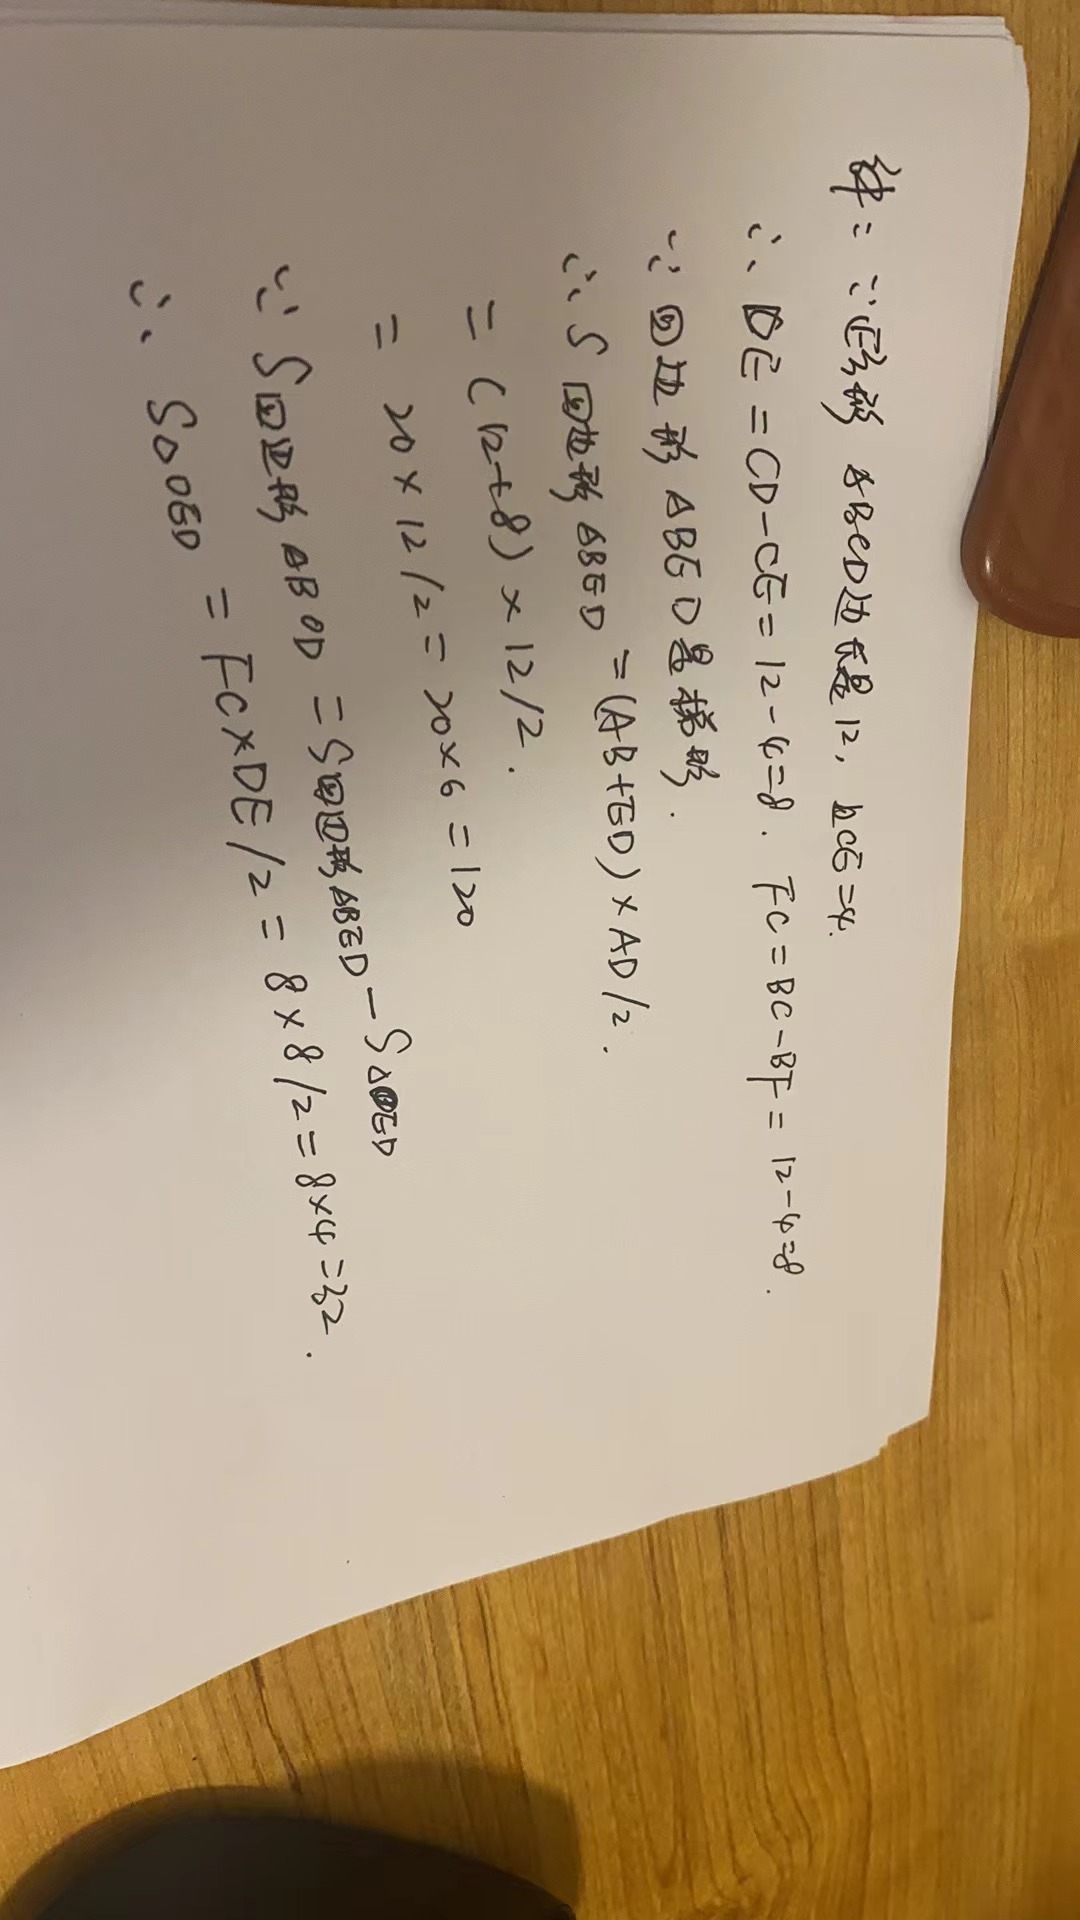 解:∵正方形ABCD边长是12,且CE=4.
∴DE=CD-CE=12-4=8. FC=BC-BF=12-4=8.
∵四边形ABED是梯形.
∴S四边形ABED=(AB+ED)×AD/2.
=(12+8)×12/2.
=20×12/2=20×6=120
∵S四边形ABOD=S四边形ABED-S△OED
∴S△OED=FC×DE/2=8×8/2=8×4=32.